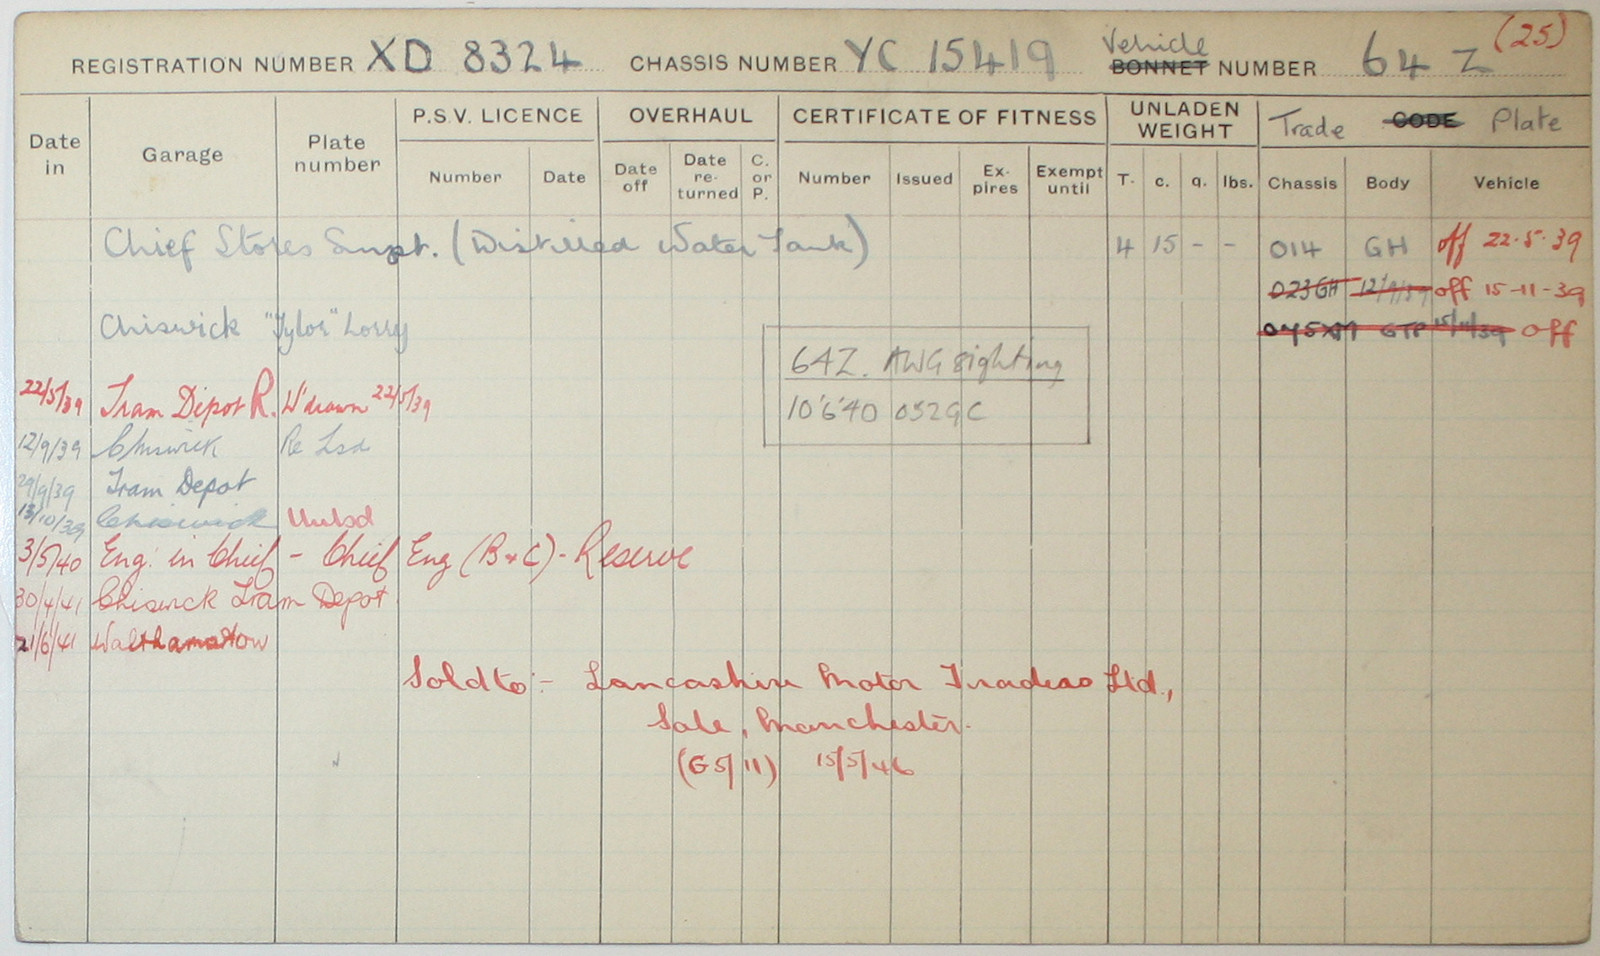 (25)
REGISTRATION NUMBER XD 8324 CHASSIS NUMBER YC 15419 Vehicle BONNET NUMBER 64 Z
Date in Garage Plate number P.S.V. LICENCE OVERHAUL CERTIFICATE OF FITNESS UNLADEN WEIGHT Trade CODE Plate
Number Date Date off Date re-turned C. or P. Number Issued Ex-pires Exempt until T. c. q. lbs. Chassis Body Vehicle
Chief Stores Supt. (Distilled Water Tank) 4 15 - - 014 GH off 22.5.39
023GH 12/9/39 off 15-11-39
Chiswick "Tylor" Lorry 15/11/39 off
64Z. AWG sighting
22/5/39 Tram Depot R. W'drawn 22/5/39
10'6'40 052GC
12/9/39 Chiswick Re Lsd
29/9/39 Tram Depot
13/10/39 Chiswick Unlsd
3/5/40 Eng. in Chief - Chief Eng (B & C) - Reserve
30/4/41 Chiswick Tram Depot
21/6/41 Walthamstow
Sold to :- Lancashire Motor Traders Ltd.,
Sale, Manchester.
(G5/11) 15/5/46